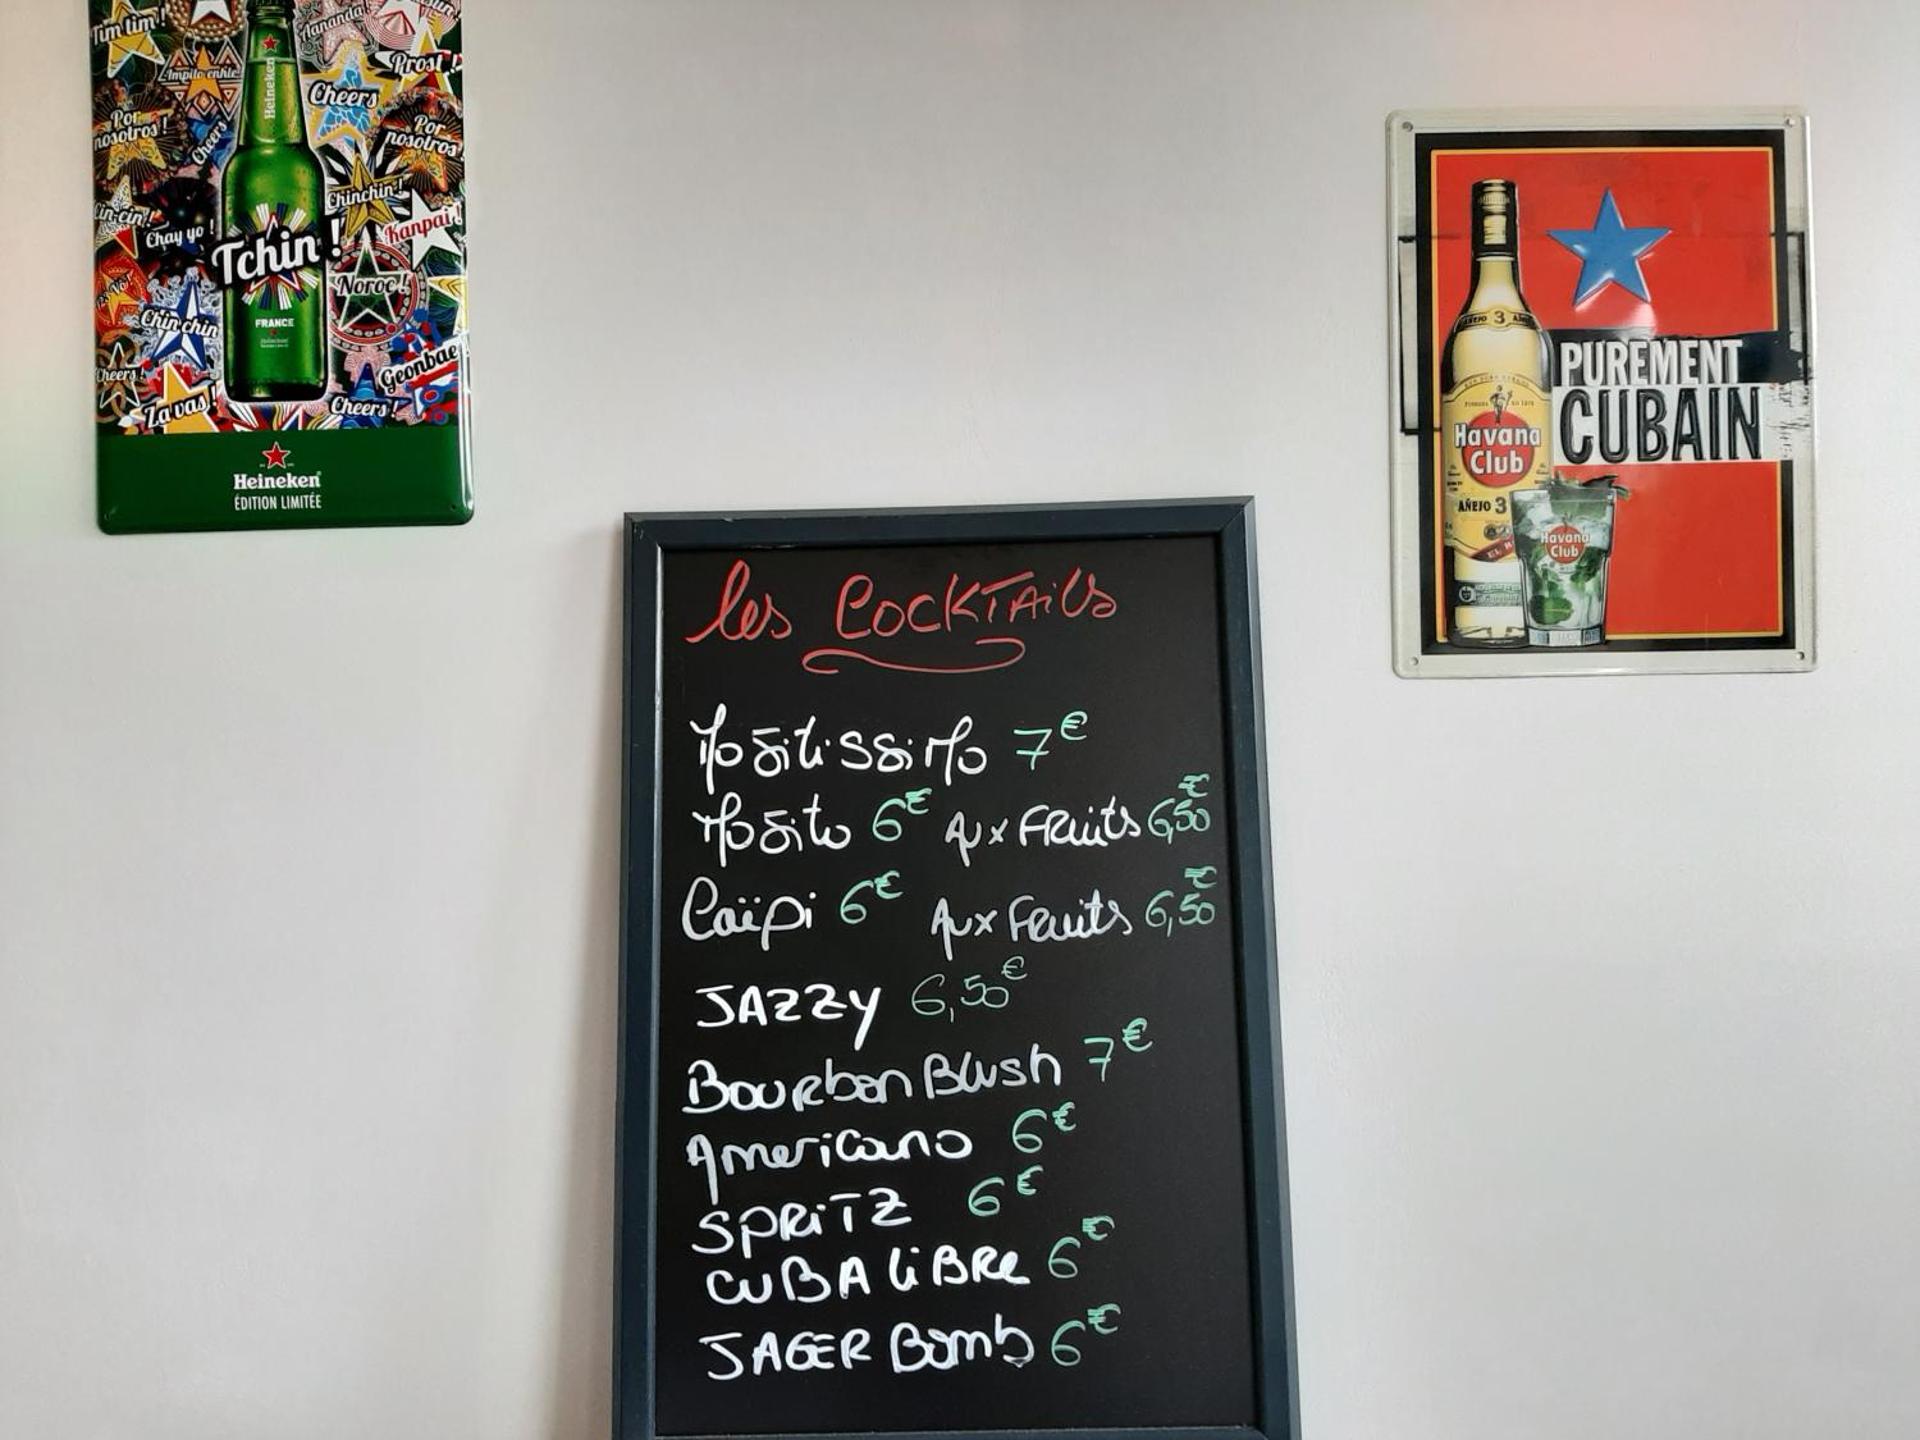 Tim tim !
Aananda !
Prost !
Ampilo enhle
Cheers
Por nosotros !
Cheers
Por nosotros !
Chinchin !
Kanpai !
Cin-cin !
Chay yo !
Heineken
Tchin !
Noroc !
Chin chin
FRANCE
Geonbae
Cheers !
Za vas !
Cheers !
Heineken
ÉDITION LIMITÉE
AÑEJO 3 AÑOS
PUREMENT
CUBAIN
Havana
Club
AÑEJO 3
Havana
Club
les COCKTAils
Mojitissimo 7€
Mojito 6€ Aux FRuits 6,50€
Caïpi 6€ Aux Fruits 6,50€
JAZZY 6,50€
Bourbon Blush 7€
Americano 6€
SPRiTZ 6€
CUBA liBRe 6€
JAGER Bomb 6€